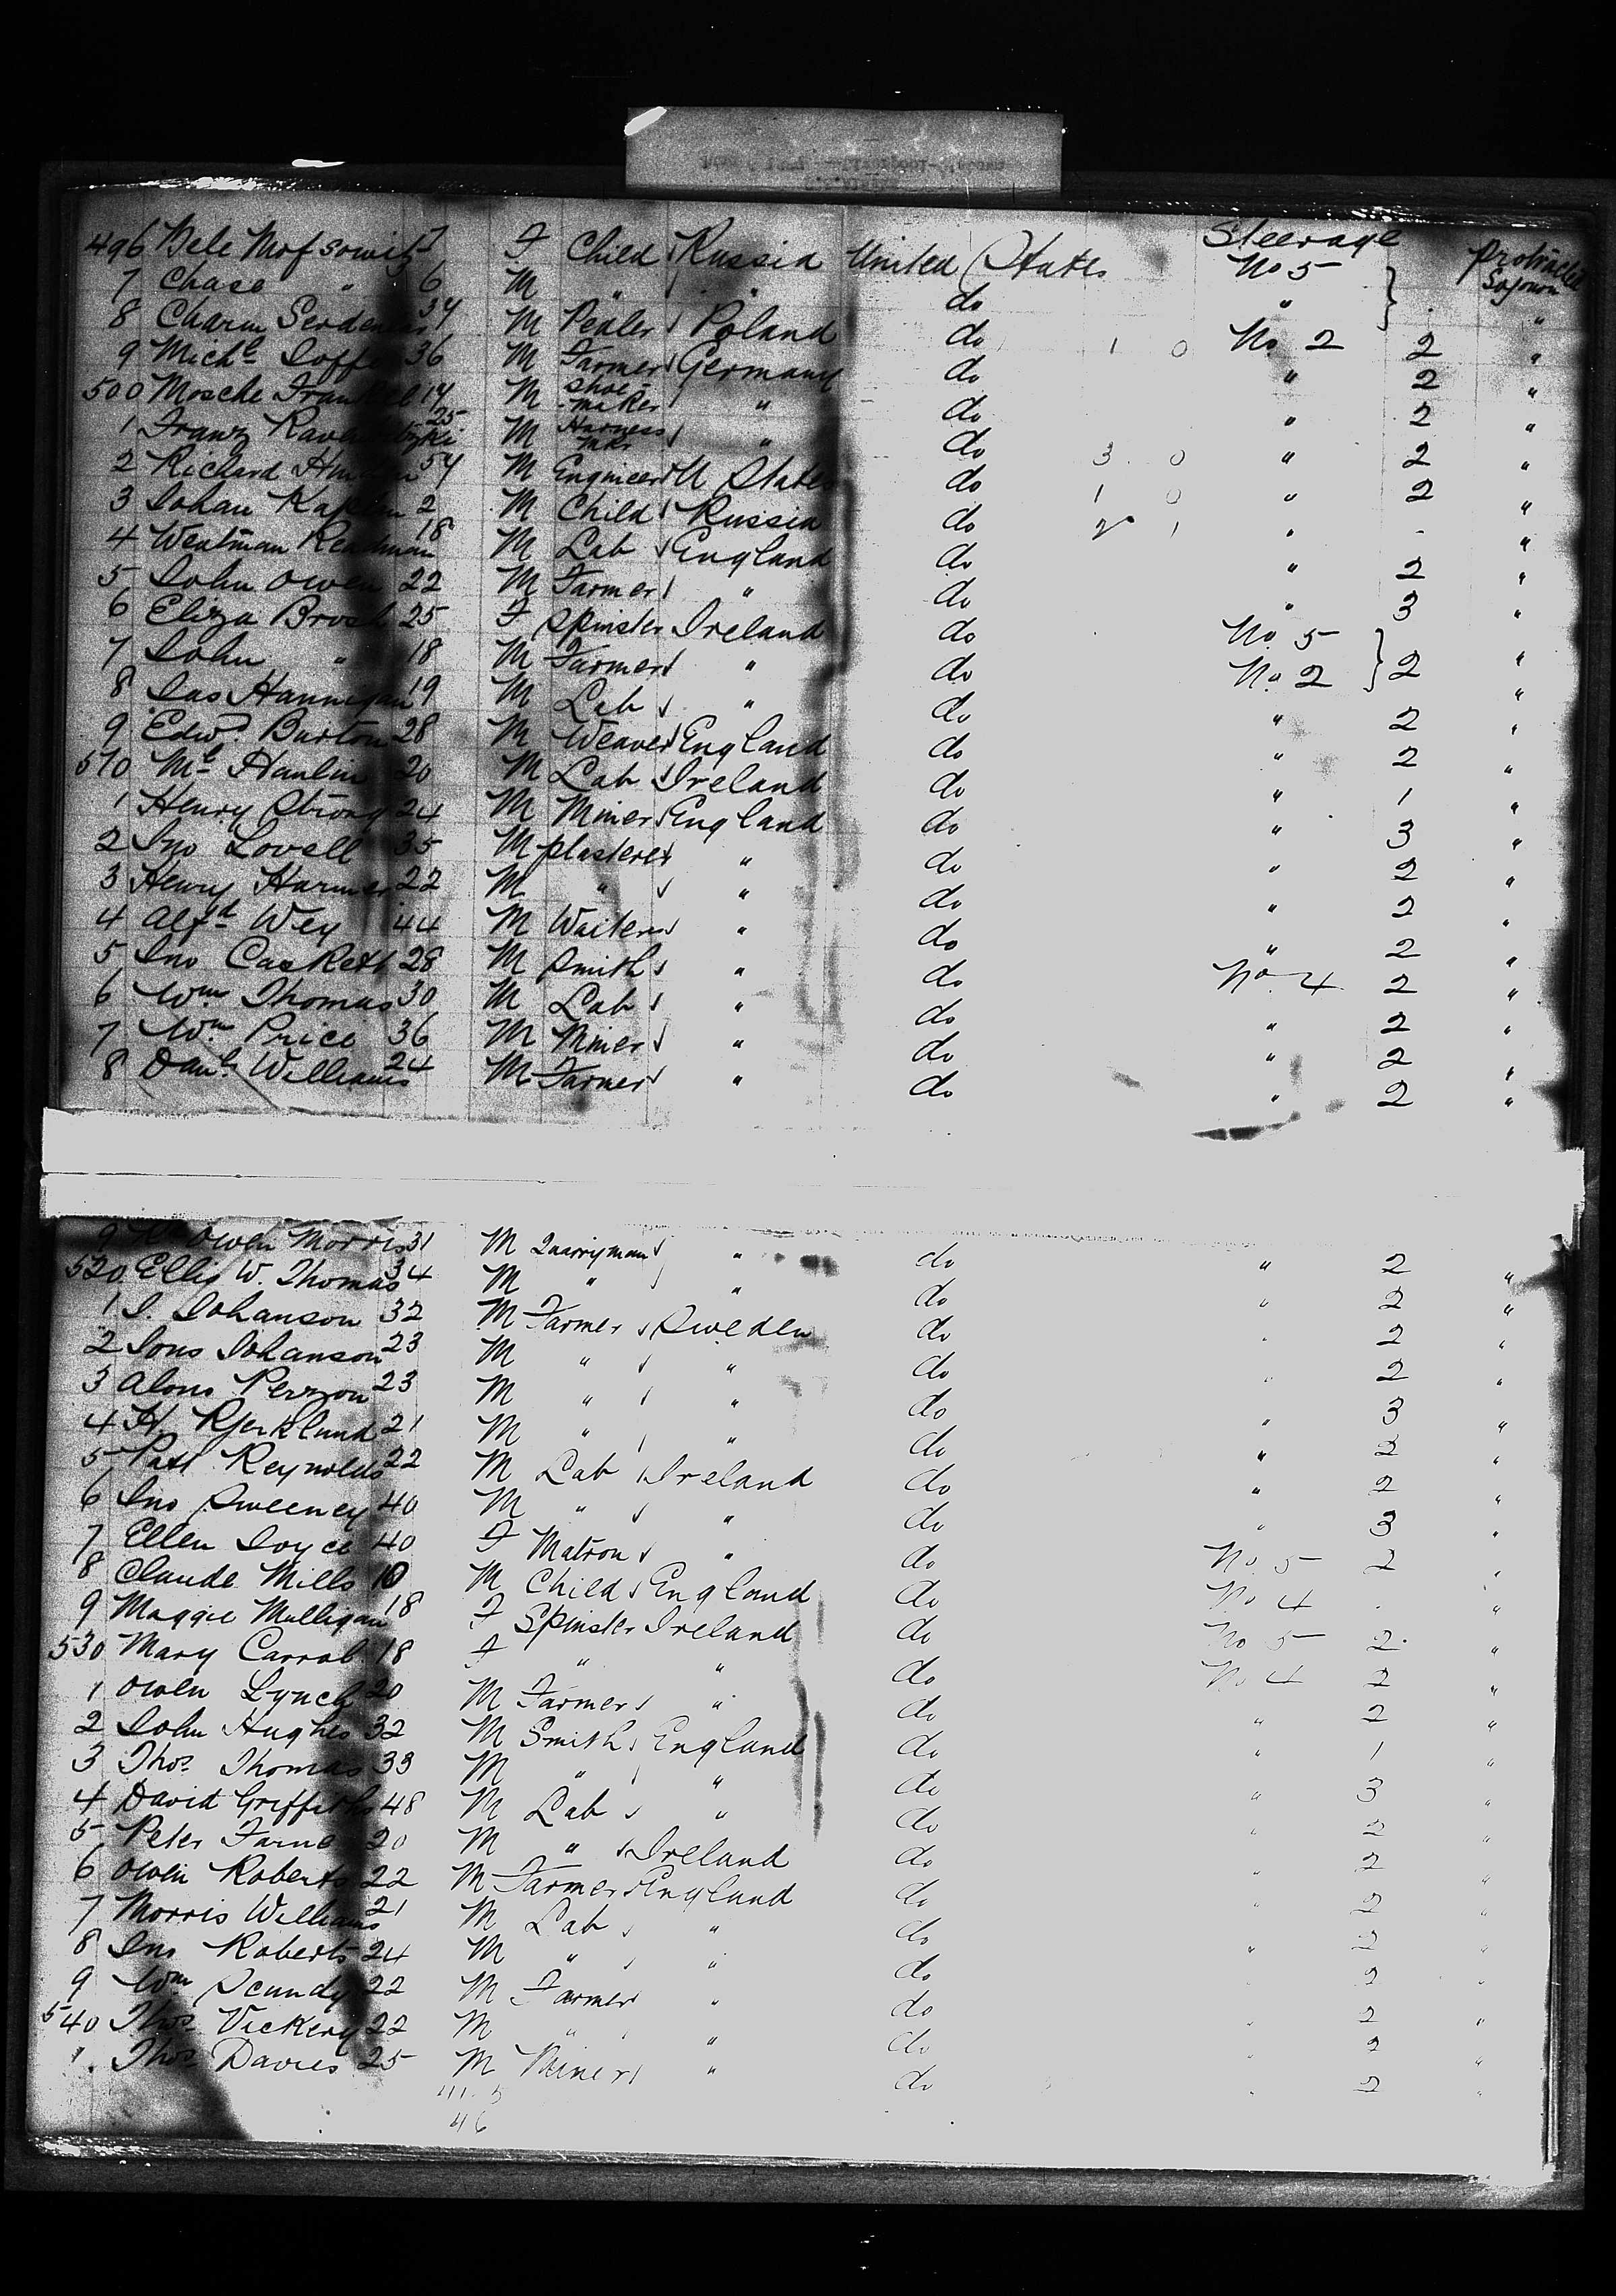 Steerage Protracted Sojourn
496 Bele Mofsowitz 7 F Child Russia United States No 5 "
7 Chase " 6 M " " do " "
8 Charm 34 M Pedler Poland do 1 0 No 2 2 "
9 Michl Soffe 36 M Farmer Germany do " 2 "
500 Mosche Frankel 14 M Shoe-maker " do " 2 "
1 Franz 25 M Harness Mkr " do 3 0 " 2 "
2 Richard 54 M Engineer U States do 1 0 " 2 "
3 Johan Kaplin 2 M Child Russia do 2 1 " "
4 Weatman Readman 18 M Lab England do " 2 "
5 John Owen 22 M Farmer " do " 3 "
6 Eliza Brosh 25 F Spinster Ireland do No. 5
7 John " 18 M Farmer " do No. 2 2 "
8 Jas Hannigan 19 M Lab " do " 2 "
9 Edwd. Burton 28 M Weaver England do " 2 "
510 Ml Hanlin 20 M Lab Ireland do " 1 "
1 Henry Strong 24 M Miner England do " 3 "
2 Jno Lovell 35 M plasterer " do " 2 "
3 Henry Harmer 22 M " " do " 2 "
4 Alfd Wey 44 M Waiter " do " 2 "
5 Jno Caskett 28 M Smith " do No. 4 2 "
6 Wm Thomas 30 M Lab " do " 2 "
7 Wm Price 36 M Miner " do " 2 "
8 Danl. Williams 24 M Farmer " do " 2 "
9 Owen Morris 31 M Quarryman " do " 2 "
520 Ellis W. Thomas 34 M " " do " 2 "
1 J. Johanson 32 M Farmer Sweden do " 2 "
2 Jons Johanson 23 M " " do " 2 "
3 Alons Perzon 23 M " " do 3 "
4 H. Kjerklund 21 M " " do " 2 "
5 Patt Reynolds 22 M Lab Ireland do " 2 "
6 Jno Sweeney 40 M " " do " 3 "
7 Ellen Joyce 40 F Matron " do No. 5 2 "
8 Claude Mills 10 M Child England do No 4 "
9 Maggie Mulligan 18 F Spinster Ireland do No 5 2 "
530 Mary Carrol 18 F " " do No 4 2 "
1 Owen Lynch 20 M Farmer " do " 2 "
2 John Hughes 32 M Smith England do " 1 "
3 Thos. Thomas 33 M " " do " 3 "
4 David Griffiths 48 M Lab " do " 2 "
5 Peter Farne 20 M " Ireland do " 2 "
6 Owen Roberts 22 M Farmer England do " 2 "
7 Morris Williams 21 M Lab " do " 2 "
8 Jno Roberts 24 M " " do " 2 "
9 Wm Scundy 22 M Farmer " do " 2 "
540 Thos. Vickery 22 M " " do " 2 "
1. Thos Davies 25 M Miner " do " 2 "
46